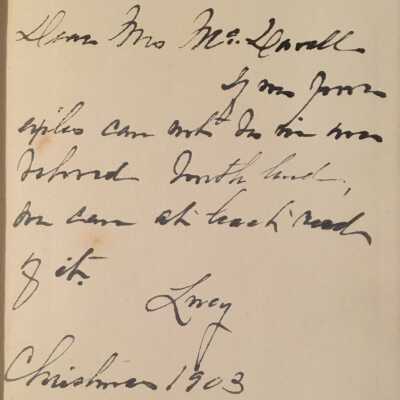 Dear Mrs McDavell
If we poor
exiles can not be in our
beloved South land,
we can at least read
of it.
Lucy
Christmas 1903